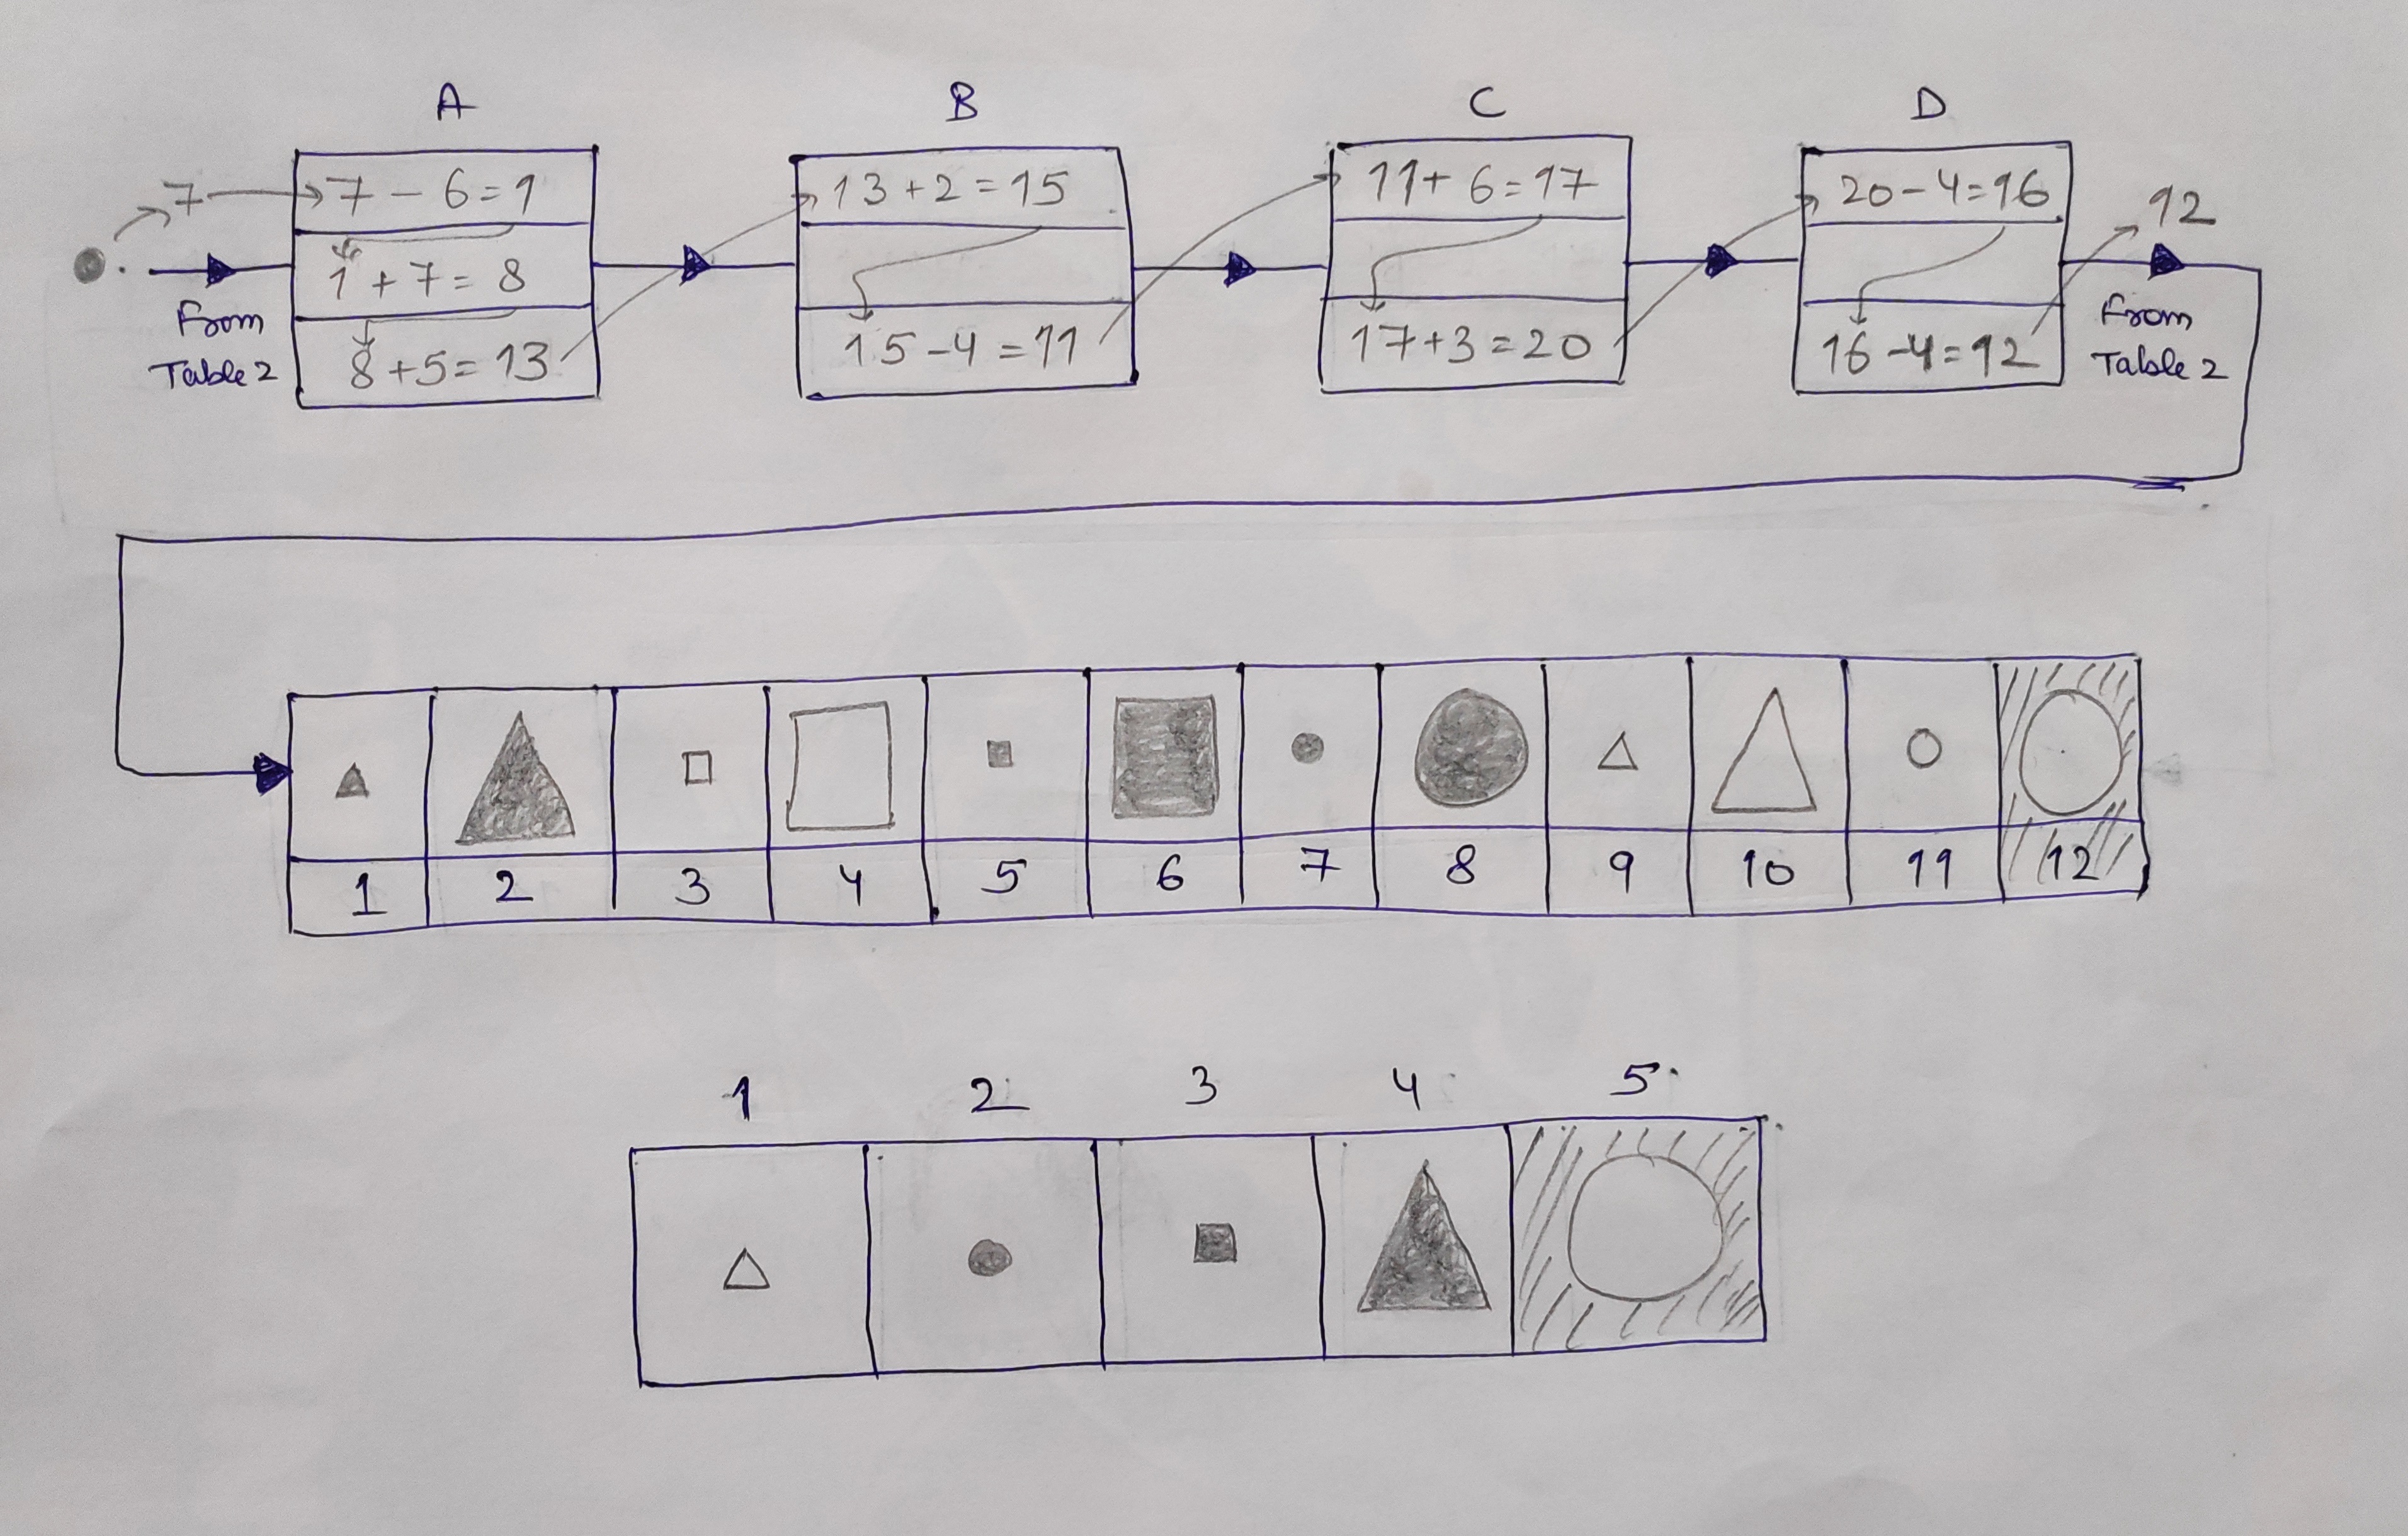 A B C D
7 7 - 6 = 1 13 + 2 = 15 11 + 6 = 17 20 - 4 = 16 12
1 + 7 = 8
From Table 2
8 + 5 = 13 15 - 4 = 11 17 + 3 = 20 16 - 4 = 12
From Table 2
1 2 3 4 5 6 7 8 9 10 11 12
1 2 3 4 5